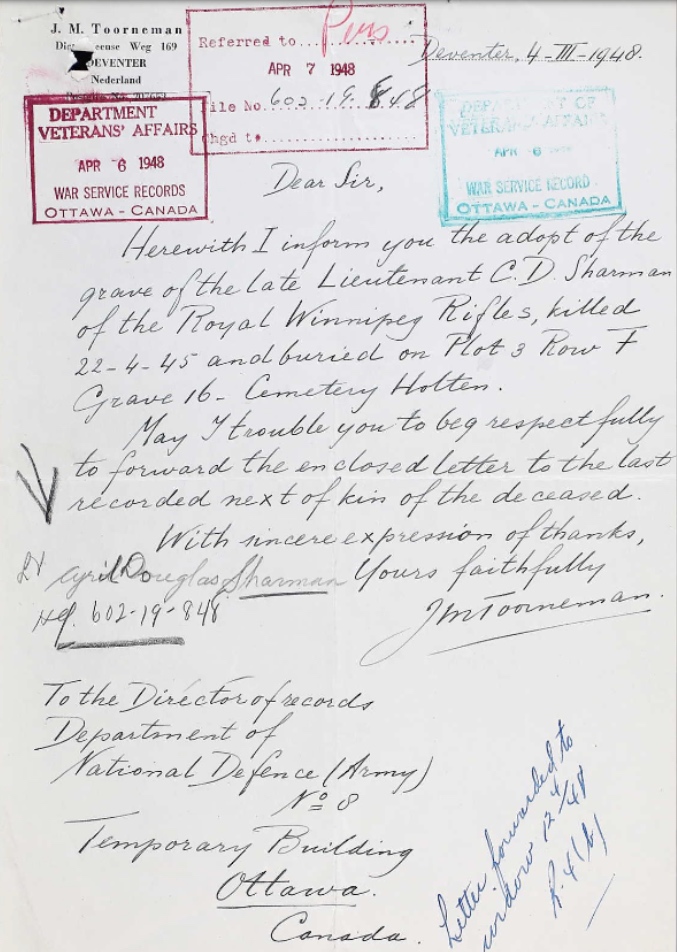 J. M. Toorneman
Weg 169
DEVENTER
Nederland
Referred to Pers
APR 7 1948
File No. 602-19-848
Chgd to
Deventer, 4-III-1948.
DEPARTMENT
VETERANS' AFFAIRS
APR 6 1948
WAR SERVICE RECORDS
OTTAWA - CANADA
DEPARTMENT OF
VETERANS AFFAIRS
APR 6
WAR SERVICE RECORD
OTTAWA - CANADA
Dear Sir,
Herewith I inform you the adopt of the
grave of the late Lieutenant C.D. Sharman
of the Royal Winnipeg Rifles, killed
22-4-45 and buried on Plot 3 Row F
Grave 16 - Cemetery Holten.
May I trouble you to beg respectfully
to forward the enclosed letter to the last
recorded next of kin of the deceased.
With sincere expression of thanks,
Yours faithfully
JMToorneman.
Lt Cyril Douglas Sharman
HQ. 602-19-848
To the Director of records
Department of
National Defence (Army)
No 8
Temporary Building
Ottawa.
Canada.
Letter forwarded to
widow 12/4/48